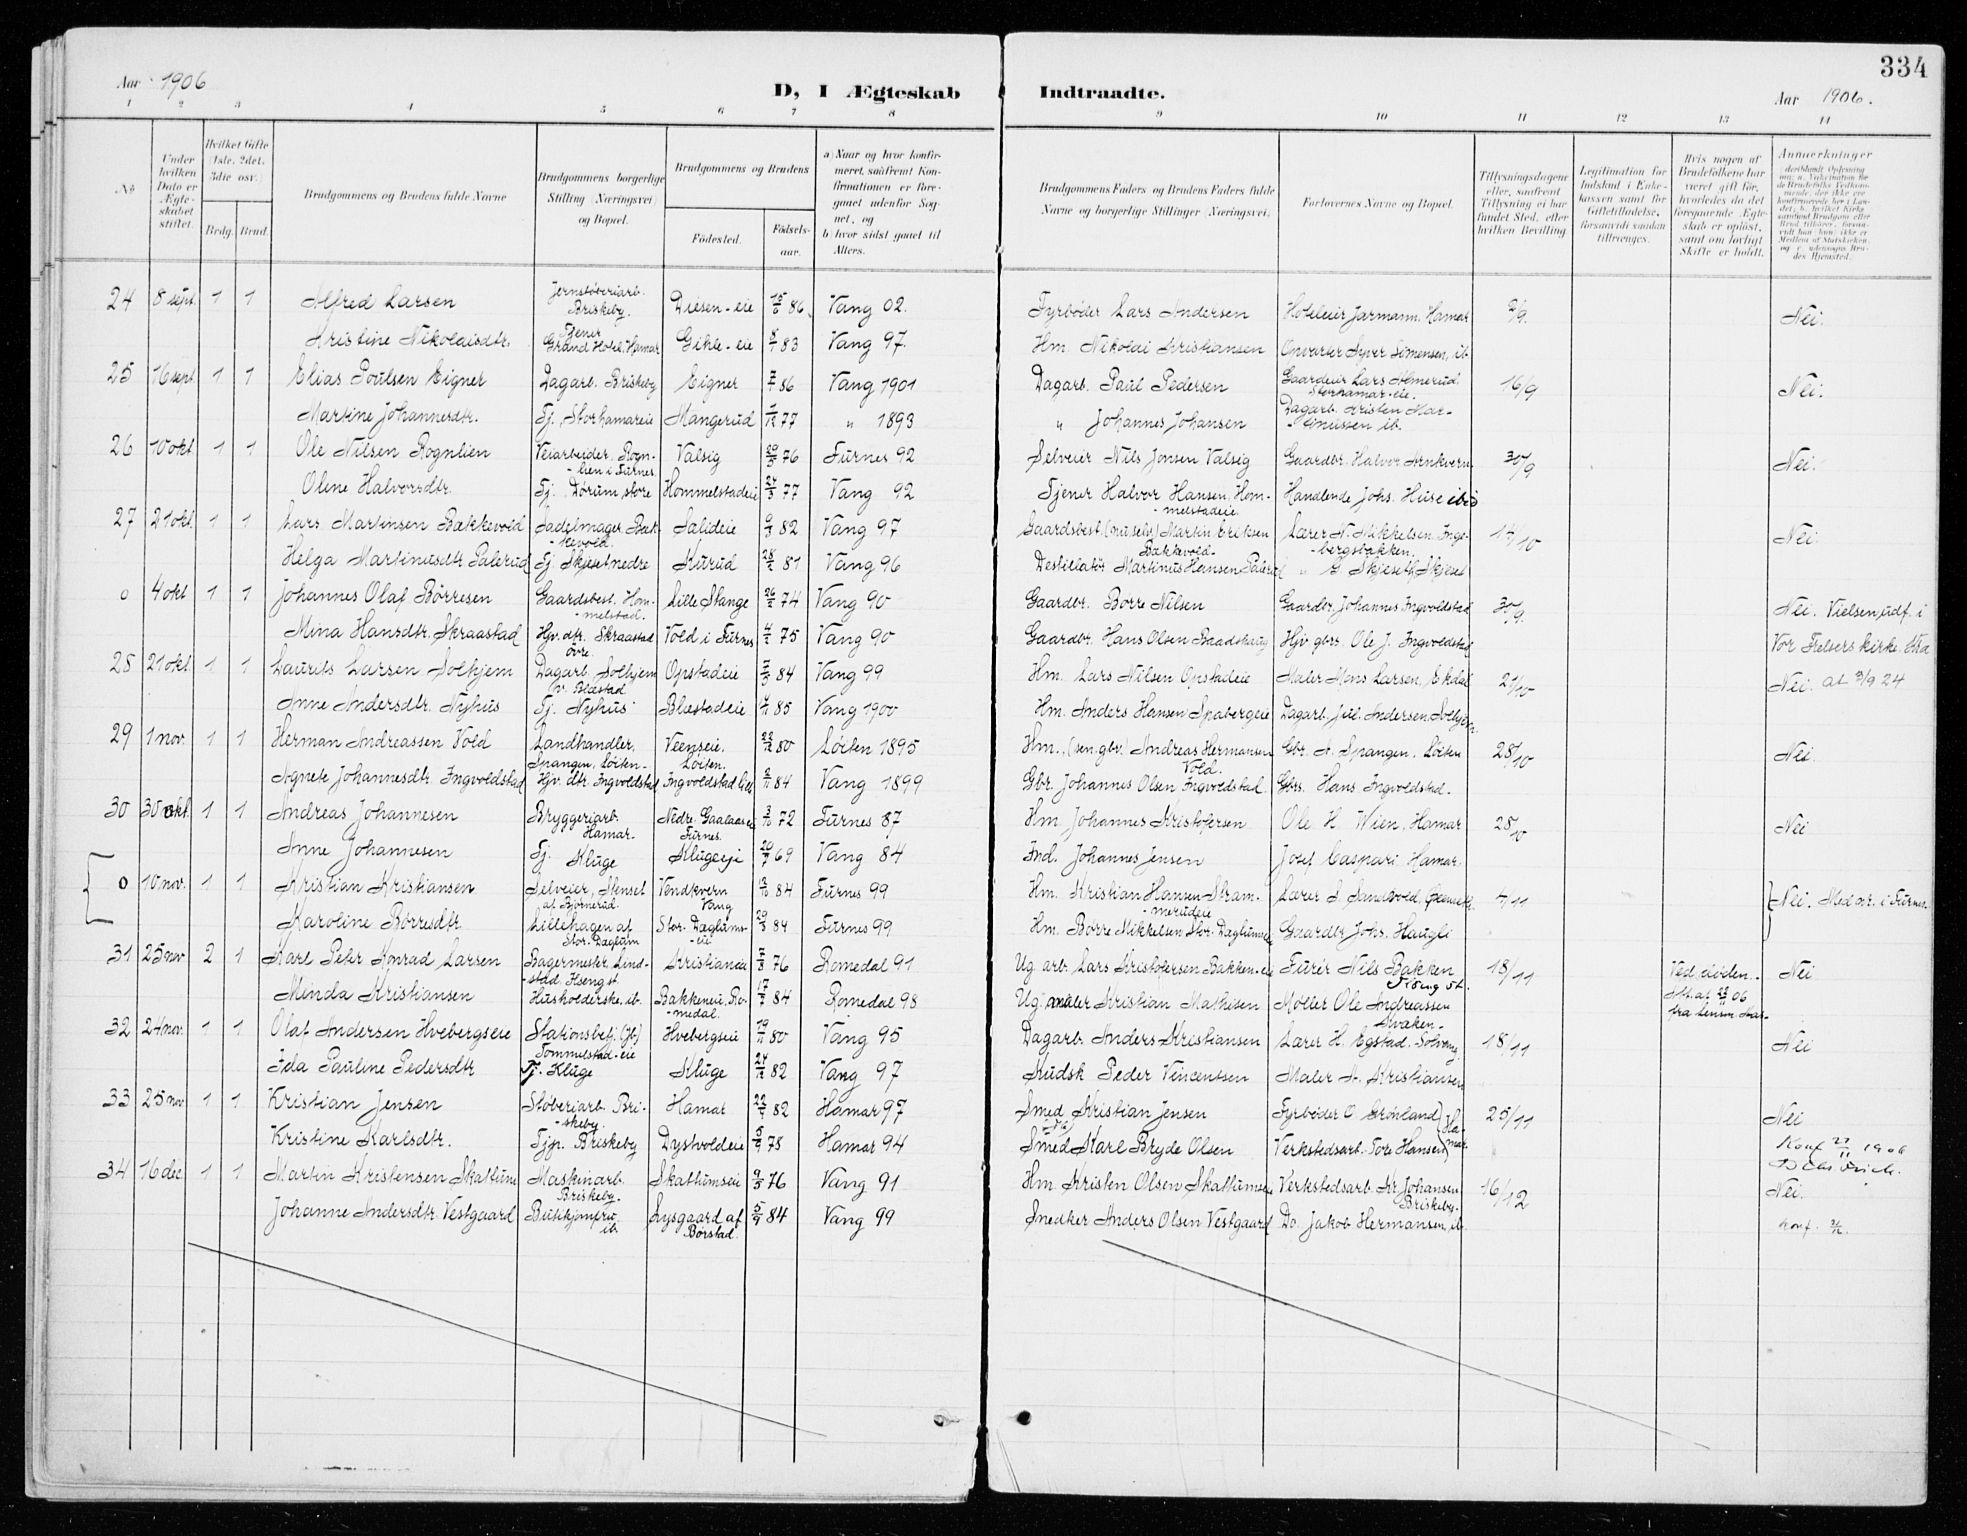 334
Aar 1906
D, I Ægteskab Indtraadte.
Aar 1906.
1 2 3 4 5 6 7 8 9 10 11 12 13 14
No
Under hvilken Dato er Ægteskabet stiftet.
Hvilket Gifte (1ste, 2det, 3die osv.)
Brdg. Brud.
Brudgommens og Brudens fulde Navne
Brudgommens borgerlige Stilling (Næringsvei) og Bopæl.
Brudgommens og Brudens
Fødested.
Fødselsaar.
a) Naar og hvor konfirmeret, saafremt Konfirmationen er foregaaet udenfor Sognet, og
b) hvor sidst gaaet til Alters.
Brudgommens Faders og Brudens Faders fulde Navne og borgerlige Stillinger (Næringsvei).
Forlovernes Navne og Bopæl.
Tillysningsdagene eller, saafremt Tillysning ei har fundet Sted, efter hvilken Bevilling
Legitimation for Indskud i Enkekassen samt for Giftetilladelse, forsaavidt saadan tiltrænges.
Hvis nogen af Brudefolkene har været gift før, hvorledes da det foregaaende Ægteskab er opløst, samt om lovligt Skifte er holdt.
Anmerkninger
24 8 sept. 1 1 Alfred Larsen Jernstøberiarb. Briskeby. Diesen-eie 15/6 86 Vang 02. Fyrbøder Lars Andersen Hoteleier Jarmann, Hamar 2/9. Nei.
Kristine Nikolaisdtr. Tjener Grand Hotel, Hamar Gihle-eie 8/1 83 Vang 97. Hm. Nikolai Kristiansen Opvarter Syver Simensen, ib.
25 16 sept 1 1 Elias Poulsen Eigner Dagarb. Briskeby Eigner 7/1 86 Vang 1901 Dagarb. Paul Pedersen Gaardeier Lars Almerud. Storhamar-eie. 16/9 Nei.
Martine Johannesdtr. Tj. Storhamareie Mangerud 1/12 77 " 1893 " Johannes Johansen Dagarb. Kristen Mar-
26 10 okt 1 1 Ole Nilsen Rognlien Veiarbeider, Rogn-lien i Furnes. Valsig 20/3 76 Furnes 92 Selveier Nils Jonsen Valsig Gaardbr. Halvor Arnkvern 30/9 Nei.
Oline Halvorsdtr. Tj. Dørum, store Hommelstadeie 24/3 77 Vang 92 Tjener Halvor Hansen, Hom-melstadeie. Handlende Johs. Huse ibid
27 21 okt 1 1 Lars Martinsen Bækkevold Sadelmager, Bæk-kevold. Salideie 9/3 82 Vang 97 Gaardsbest. Martin Eriksen Bækkevold- Lærer N. Mikkelsen, Inge-bergsbakken. 14/10 Nei.
Helga Martinusdtr Palerud Tj. Skjeset nedre Kurud 28/2 81 Vang 96 Destillatør Martinus Hansen, Palerud " G. Skjeseth, Skjeset
0 4 okt 1 1 Johannes Olaf Børresen Gaardsbest. Hom-melstad. Lille Stange 26/2 74 Vang 90 Gaardbr. Børre Nilsen Gaardbr. Johannes Ingvoldstad 30/9. Nei. Vielsen udf. i
Mina Hansdtr. Skraastad Hjv. dtr. Skraastad øvre. Vold i Furnes 4/2 75 Vang 90 Gaardbr. Hans Olsen Baadshaug Hjv gbrs. Ole J. Ingvoldstad Vor Frelsers kirke.
28 21 okt 1 1 Laurits Larsen Solhjem Dagarb. Solhjem v. Blæstad Opstadeie 7/3 84 Vang 99 Hm. Lars Nilsen Opstadeie Maler Mons Larsen, Ekdal 21/10 Nei. at 3/9 24
Anne Andersdtr. Nyhus Tj. Nyhus Blæstadeie 4/11 85 Vang 1900 Hm. Anders Hansen Spabergeie Dagarb. Jul. Andersen, Solhjem.
29 1 nov. 1 1 Herman Andreassen Vold Landhandler, Spangen, Løiten- Veenseie, Løiten. 22/12 80 Løiten 1895 Hm. (sen. gbr.) Andreas Hermansen Vold. Gbr. A. Spangen, Løiten 28/10 Nei.
Agnete Johannesdtr. Ingvoldstad Hjv. dtr. Ingvoldstad Ingvoldstad lille 2/11 84 Vang 1899 Gbr. Johannes Olsen Ingvoldstad. Gbrs. Hans Ingvoldstad.
30 30 okt. 1 1 Andreas Johannesen Bryggeriarb. Hamar. Nedre Gaalaaseie Furnes. 3/10 72 Furnes 87 Hm. Johannes Kristofersen Ole H. Wien, Hamar 28/10 Nei
Anne Johannesen Tj. Kluge Klugeeje 20/7 69 Vang 84 Ind. Johannes Jensen Josef Caspari Hamar.
0 10 nov. 1 1 Kristian Kristiansen Selveier, Stenset af Bjørnerud. Vendkvern Vang 12/10 84 Furnes 99 Hm. Kristian Hansen Stram-merudeie Lærer S. Sandvold, 4/11 Nei. Medd. i Furnes.
Karoline Børresdtr. Lillehagen af Stor. Daglum Stor. Daglums-eie 29/3 84 Furnes 99 Hm. Børre Mikkelsen Stor. Daglumseie Gaardbr Johs. Haugli
31 25 nov 2 1 Karl Peter Konrad Larsen Bagermester, Lind-stad, Hseng st. Kristiania 7/8 76 Romedal 91 Ug. arb. Lars Kristofersen Bakken-eie Furer Nils Bakken 18/11 Ved døden. Nei
Minda Kristiansen Husholderske, ib. Bakkeneie, Ro-medal. 17/2 84 Romedal 98 Ug. maler Kristian Mathisen Møller Ole Andreassen
32 24 nov. 1 1 Olaf Andersen Hvebergseie Stationsbetj. (Jb) Tommelstad-eie Hvebergseie 19/11 80 Vang 95 Dagarb. Anders Kristiansen Lærer H. Egstad. Solvang 18/11 Nei
Ida Pauline Pedersdtr Tj. Kluge Kluge 24/12 82 Vang 97 Kudsk Peder Vincentsen Maler A. Kristiansen
33 25 nov 1 1 Kristian Jensen Støberiarb. Bri-skeby. Hamar 22/9 82 Hamar 97 Smed Kristian Jensen Fyrbøder O. Grønland Ha-mar 25/11 Nei
Kristine Karlsdtr. Tjp. Briskeby Dystvoldeie 5/9 78 Hamar 94 Smed Karl Bryde Olsen Verkstedsarb. Tore Hansen Konf 27/11 1906
34 16 dec 1 1 Martin Kristensen Skattum Maskinarb. Briskeby. Skattumseie 9/3 76 Vang 91 Hm. Kristen Olsen Skattumseie Verkstedsarb. Kr. Johansen Briskeby. 16/12 Nei.
Johanne Andersdtr. Vestgaard Butikjomfru ib. Lysgaard af Børstad. 5/9 84 Vang 99 Snedker Anders Olsen Vestgaard Do. Jakob Hermansen, ib.